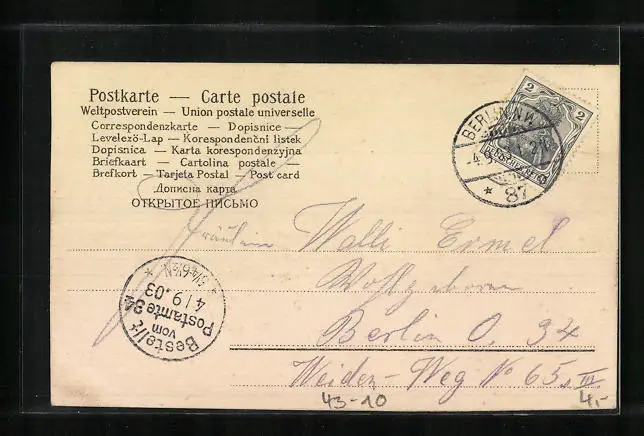 Postkarte — Carte postale
Weltpostverein — Union postale universelle
Correspondenzkarte — Dopisnice —
Levelező-Lap — Korespondenční listek
Dopisnica — Karta korespondencyjna
Briefkaart — Cartolina postale —
Brefkort — Tarjeta Postal — Post card
Дописна карта
ОТКРЫТОЕ ПИСЬМО
2 2
DEUTSCHES REICH
BERLIN N.W.
* 87
Fräulein Walli Ermel
Wohlgeboren
Berlin O. 34
Weiden-Weg No 65, III
Bestellt
vom
Postamte 34
4/9.03
43-10
4,-